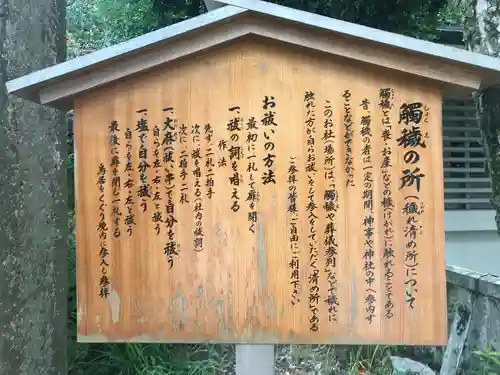 觸穢の所(穢れ清め所)について
しょく え
けが
觸穢とは、喪・お産などの穢(けがれ)に触れることである
昔、觸穢の者は一定の期間、神事や神社の中へ参内す
ることなどもできなかった
このお社、場所は、「觸穢や葬儀参列」などで穢れに
触れた方が自らお祓いをして参入をしていただく「清め所」である
ご参拝の皆様、ご自由にご利用下さい
お祓いの方法
最初に一礼して扉を開く
一、祓の詞を唱える
作法
先ず二礼二拍手
次に「祓を唱える(社内の祓詞)
次に二拍手一礼
一、大麻(祓い串)で自分を祓う
自らを左・右・左と祓う
一、塩で自分を祓う
自らを左・右・左と祓う
最後に扉を閉め一礼する
鳥居をくぐり境内に参入し参拝